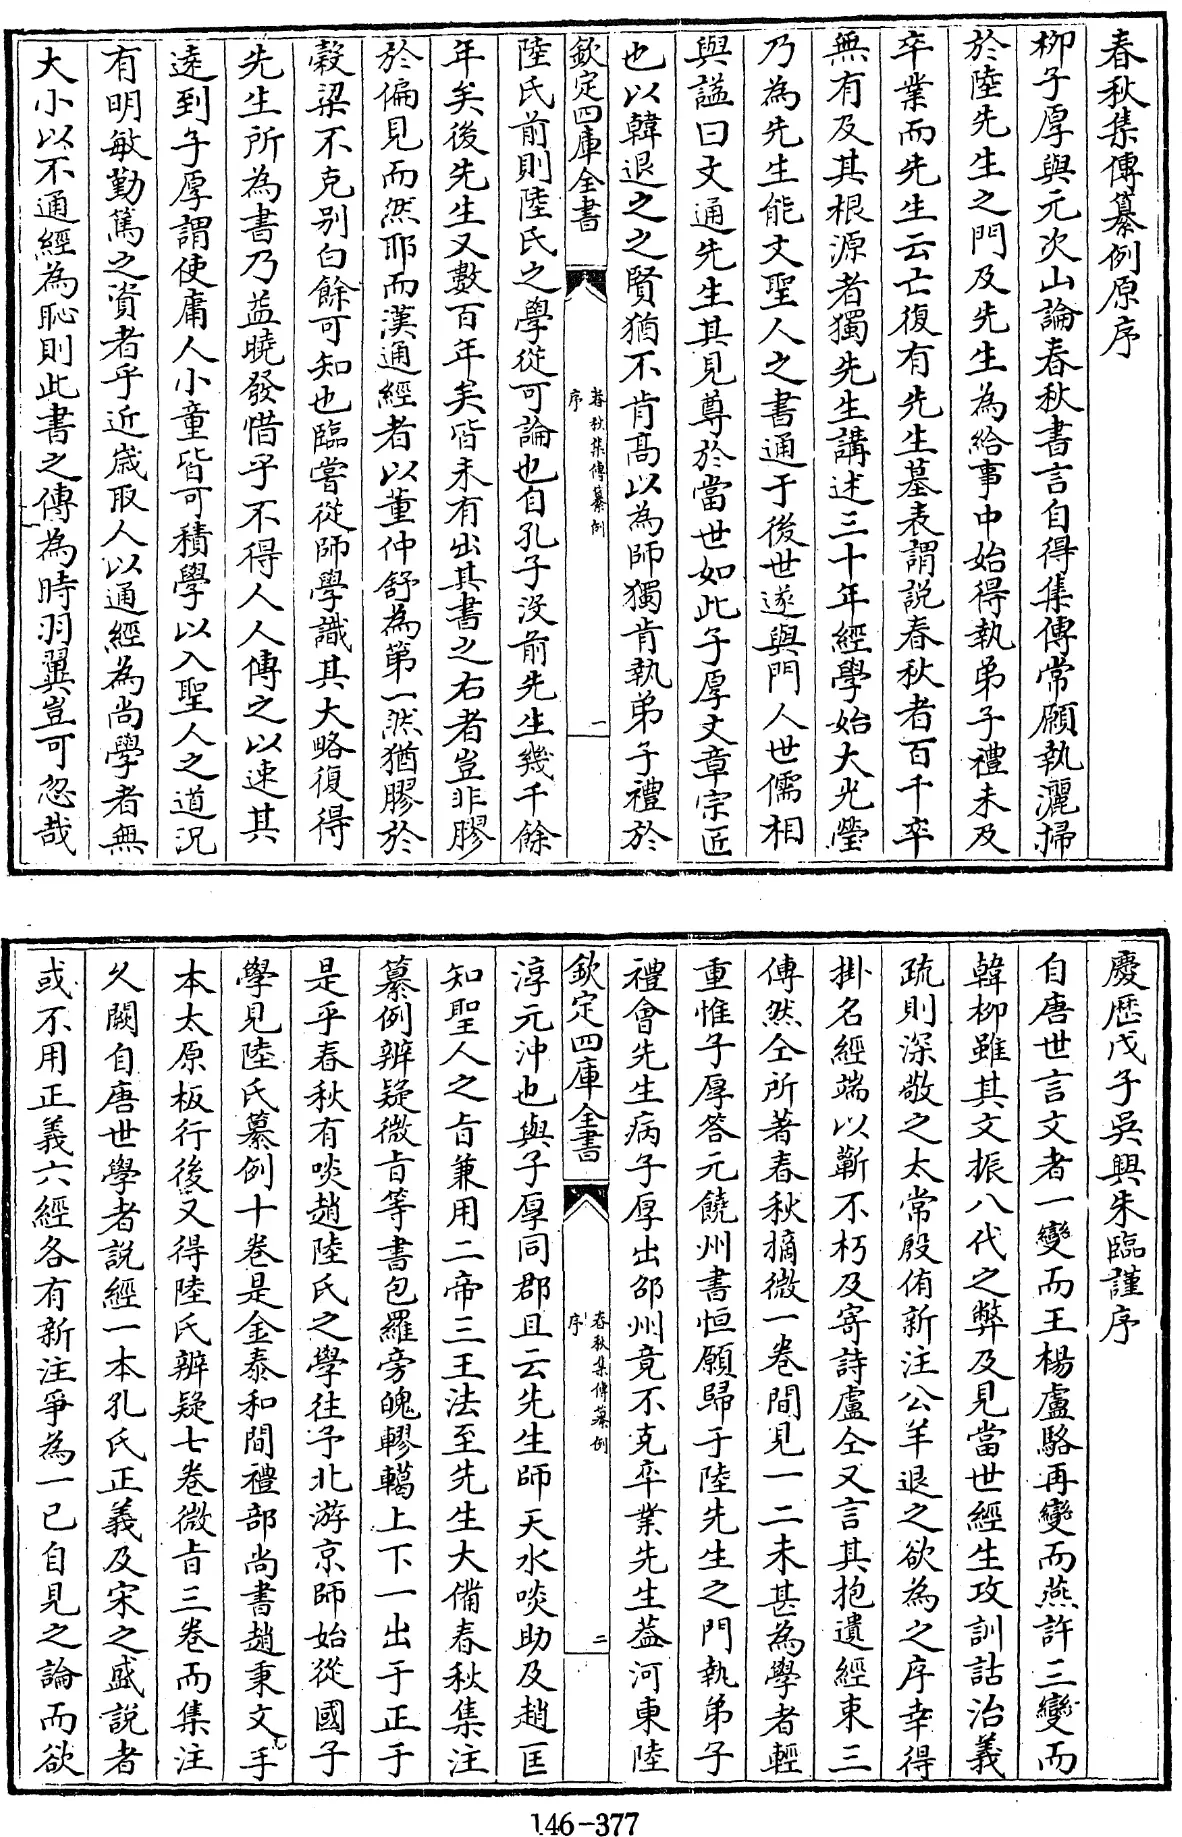 春秋集傳纂例原序
柳子厚與元次山論春秋書言自得集傳常願執灑掃
於陸先生之門及先生為給事中始得執弟子禮未及
卒業而先生云亡復有先生墓表謂說春秋者百千卒
無有及其根源者獨先生講述三十年經學始大光瑩
乃為先生能文聖人之書通于後世遂與門人世儒相
與謚曰文通先生其見尊於當世如此子厚文章宗匠
也以韓退之之賢猶不肯髙以為師獨肯執弟子禮於
欽定四庫全書
春秋集傳纂例
序
一
陸氏前則陸氏之學從可論也自孔子沒前先生幾千餘
年矣後先生又數百年矣皆未有出其書之右者豈非膠
於偏見而然耶而漢通經者以董仲舒為第一然猶膠於
穀梁不克别白餘可知也臨嘗從師學識其大略復得
先生所為書乃益曉發惜乎不得人人傳之以速其
逹到子厚謂使庸人小童皆可積學以入聖人之道况
有明敏勤篤之資者乎近歳取人以通經為尚學者無
大小以不通經為恥則此書之傳為時羽翼豈可忽哉
慶歷戊子吳興朱臨謹序
自唐世言文者一變而王楊盧駱再變而燕許三變而
韓柳雖其文振八代之弊及見當世經生攻訓詁治義
疏則深敬之太常殷侑新注公羊退之欲為之序幸得
掛名經端以蘄不朽及寄詩盧仝又言其抱遺經束三
傳然仝所著春秋摘微一卷間見一二未甚為學者輕
重惟子厚答元饒州書恒願歸于陸先生之門執弟子
禮會先生病子厚出邵州竟不克卒業先生葢河東陸
欽定四庫全書
春秋集傳纂例
序
二
淳元沖也與子厚同郡且云先生師天水啖助及趙匡
知聖人之㫖兼用二帝三王法至先生大備春秋集注
纂例辨疑微㫖等書包羅旁魄轇轕上下一出于正于
是乎春秋有啖趙陸氏之學往予北游京師始從國子
學見陸氏纂例十卷是金泰和間禮部尚書趙秉文手
本太原板行後又得陸氏辨疑七卷微㫖三卷而集注
久闕自唐世學者說經一本孔氏正義及宋之盛說者
或不用正義六經各有新注爭為一已自見之論而欲
146-377